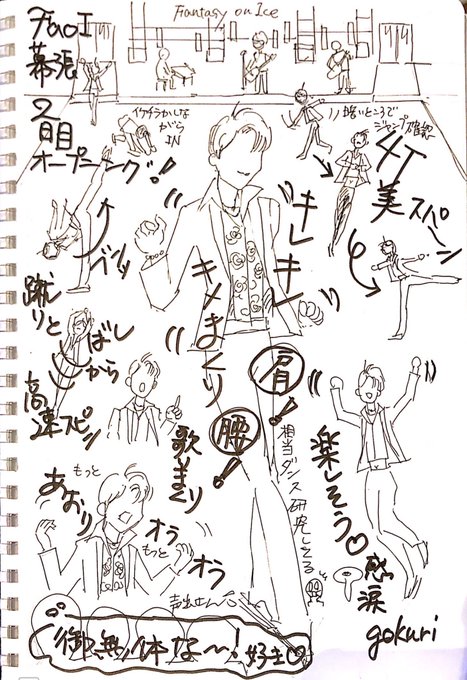 Fantasy on Ice
FaoI
幕張
2日目
オープニング!
イケチラかしな
がら
IN
暗いところで
ジャンプ確認
4T
美スピーン
バッ
キレキレ
キメまくり
蹴りとばし
から
高速スピン
肩!
腰!
歌いまくり
相当ダンス研究してる
楽しそう♡
感涙
もっと
あおり
オラ
もっと
オラ
声出せんて
御無体な〜!好き♡
gokuri